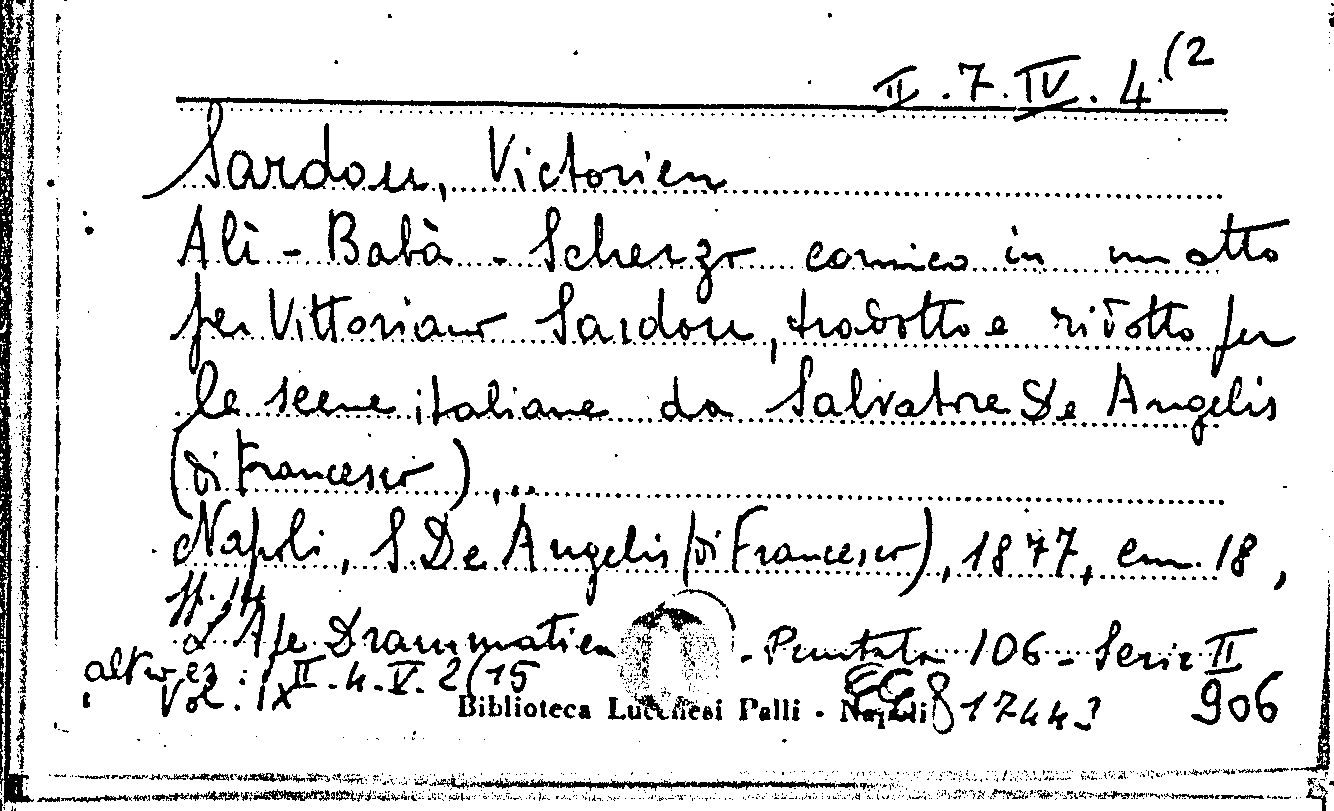 II.7.IV.4(2
Sardou, Victorien
Alì-Babà - Scherzo comico in un atto
per Vittoriano Sardou, tradotto e ridotto per
le scene italiane da Salvatore De Angelis
(di Francesco),..
Napoli, S. De Angelis (di Francesco), 1877, cm. 18,
pp. 14
L'Ape Drammatica - Puntata 106 - Serie II
altro es: II.4.V.2(15
Vol. IX
Biblioteca Lucchesi Palli - Napoli
17443
906